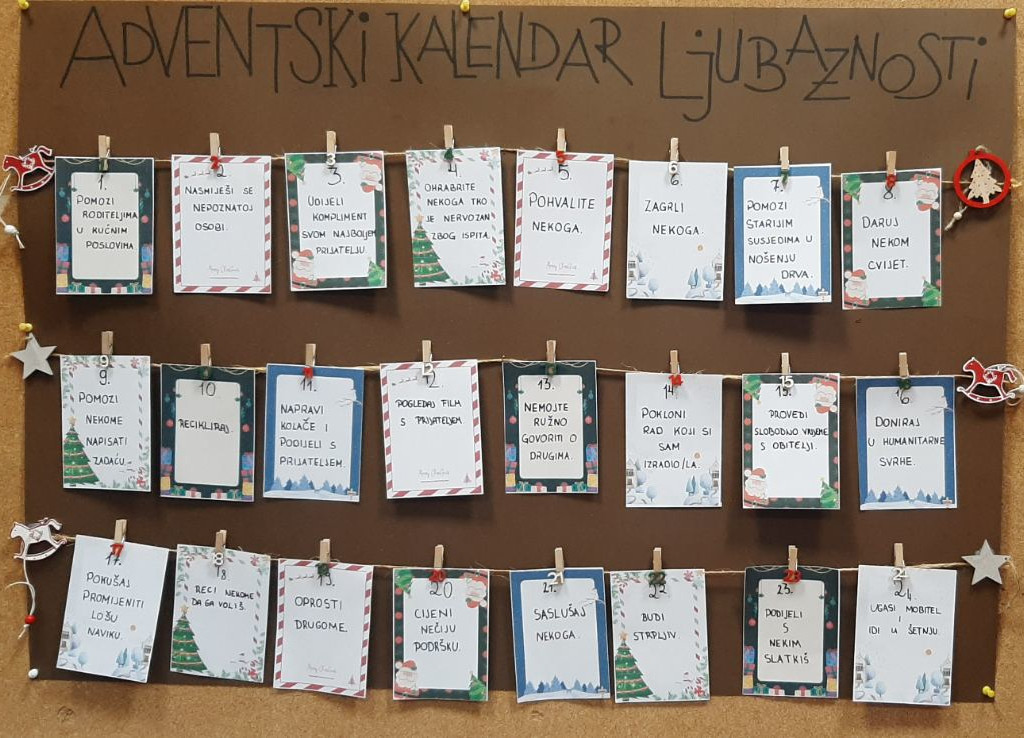 ADVENTSKI KALENDAR LJUBAZNOSTI
1.
POMOZI
RODITELJIMA
U KUĆNIM
POSLOVIMA
2.
NASMIJEŠI SE
NEPOZNATOJ
OSOBI.
3.
UDIJELI
KOMPLIMENT
SVOM NAJBOLJEM
PRIJATELJU.
4.
OHRABRITE
NEKOGA TKO
JE NERVOZAN
ZBOG ISPITA.
5.
POHVALITE
NEKOGA.
6.
ZAGRLI
NEKOGA.
7.
POMOZI
STARIJIM
SUSJEDIMA U
NOŠENJU
DRVA.
8.
DARUJ
NEKOM
CVIJET.
9
9.
POMOZI
NEKOME
NAPISATI
ZADAĆU.
10
RECIKLIRAJ.
11.
NAPRAVI
KOLAČE I
PODIJELI S
PRIJATELJEM.
12
12.
POGLEDAJ FILM
S PRIJATELJEM.
13.
NEMOJTE
RUŽNO
GOVORITI O
DRUGIMA.
14.
POKLONI
RAD KOJI SI
SAM
IZRADIO/LA.
15
15.
PROVEDI
SLOBODNO VRIJEME
S OBITELJI.
16.
DONIRAJ
U HUMANITARNE
SVRHE.
17.
POKUŠAJ
PROMIJENITI
LOŠU
NAVIKU.
18
18
RECI NEKOME
DA GA VOLIŠ.
19.
OPROSTI
DRUGOME.
20
CIJENI
NEČIJU
PODRŠKU.
21
21.
SASLUŠAJ
NEKOGA.
22
BUDI
STRPLJIV.
23.
PODIJELI
S
NEKIM
SLATKIŠ
24
24.
UGASI MOBITEL
I
IDI U ŠETNJU.